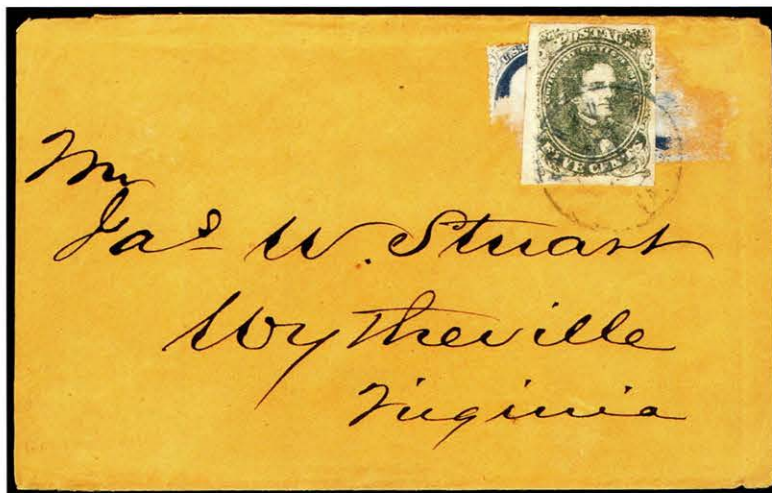 POSTAGE
FIVE CENTS
Mr
Jas W. Stuart
Wytheville
Virginia